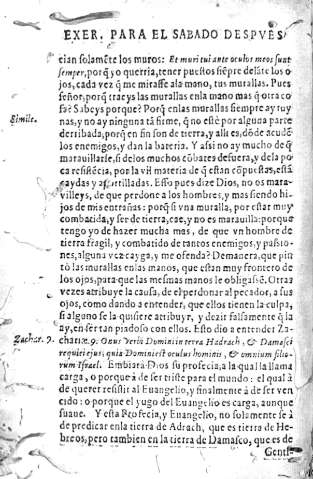 EXER. PARA EL SABADO DESPVES
cian solamẽte los muros: Et muri tui ante oculos meos sunt
semper, porq̃ yo querria, tener puestos siẽpre delãte los o-
jos, cada vez q̃ me mirasse a la mano, tus murallas. Pues
señor, porq̃ traeys las murallas en la mano mas q̃ otra co
sa? Sabeys porque? Porq̃ en las murallas siempre ay ruy
Simile.
nas, y no ay ninguna tã firme, q̃ no estè por alguna parte
derribada, porq̃ en fin son de tierra, y alli es, dõde acudẽ
los enemigos, y dan la bareria. Y assi no ay mucho de q̃
marauillarse, si de los muchos cõbates defuera, y de la po
ca resistẽcia, por la vil materia de q̃ estan cõpuestas, està
caydas y aportilladas. Esso pues dize Dios, no os mara-
villeys, de que perdone a los hombres, y mas siendo hi-
jos de mis entrañas: porq̃ si vna muralla, por estar muy
combatida, y ser de tierra, cae, y no es marauilla: porque
tengo yo de hazer mucha mas, de que vn hombre de
tierra fragil, y combatido de tantos enemigos, y passio-
nes, alguna vez cayga, y me ofenda? De manera, que pin
tò las murallas en las manos, que estan muy frontero de
los ojos, para que las mesmas manos le obligassẽ. Otras
vezes atribuye la causa, de el perdonar al pecador, a sus
ojos, como dando a entender, que ellos tienen la culpa,
si alguno se la quisiere atribuyr, y dezir falsamente q̃ la
ay, en ser tan piadoso con ellos. Esto dio a entender Za-
Zachar. 9.
charias 9. Onus Verbi Domini in terra Hadrach, & Damasci
requiei ejus, quia Domini est oculus hominis, & omnium filio-
rum Israel. Embiarà Dios su profecia, a la qual la llama
carga, o porque à de ser triste para el mundo: el qual à
de querer resistir al Euangelio, y finalmente à de ser ven
cido: o porque el yugo del Euangelio es carga, aunque
suaue. Y esta Profecia, y Euangelio, no solamente se à
de predicar en la tierra de Adrach, que es tierra de He-
breos, pero tambien en la tierra de Damasco, que es de
Genti-